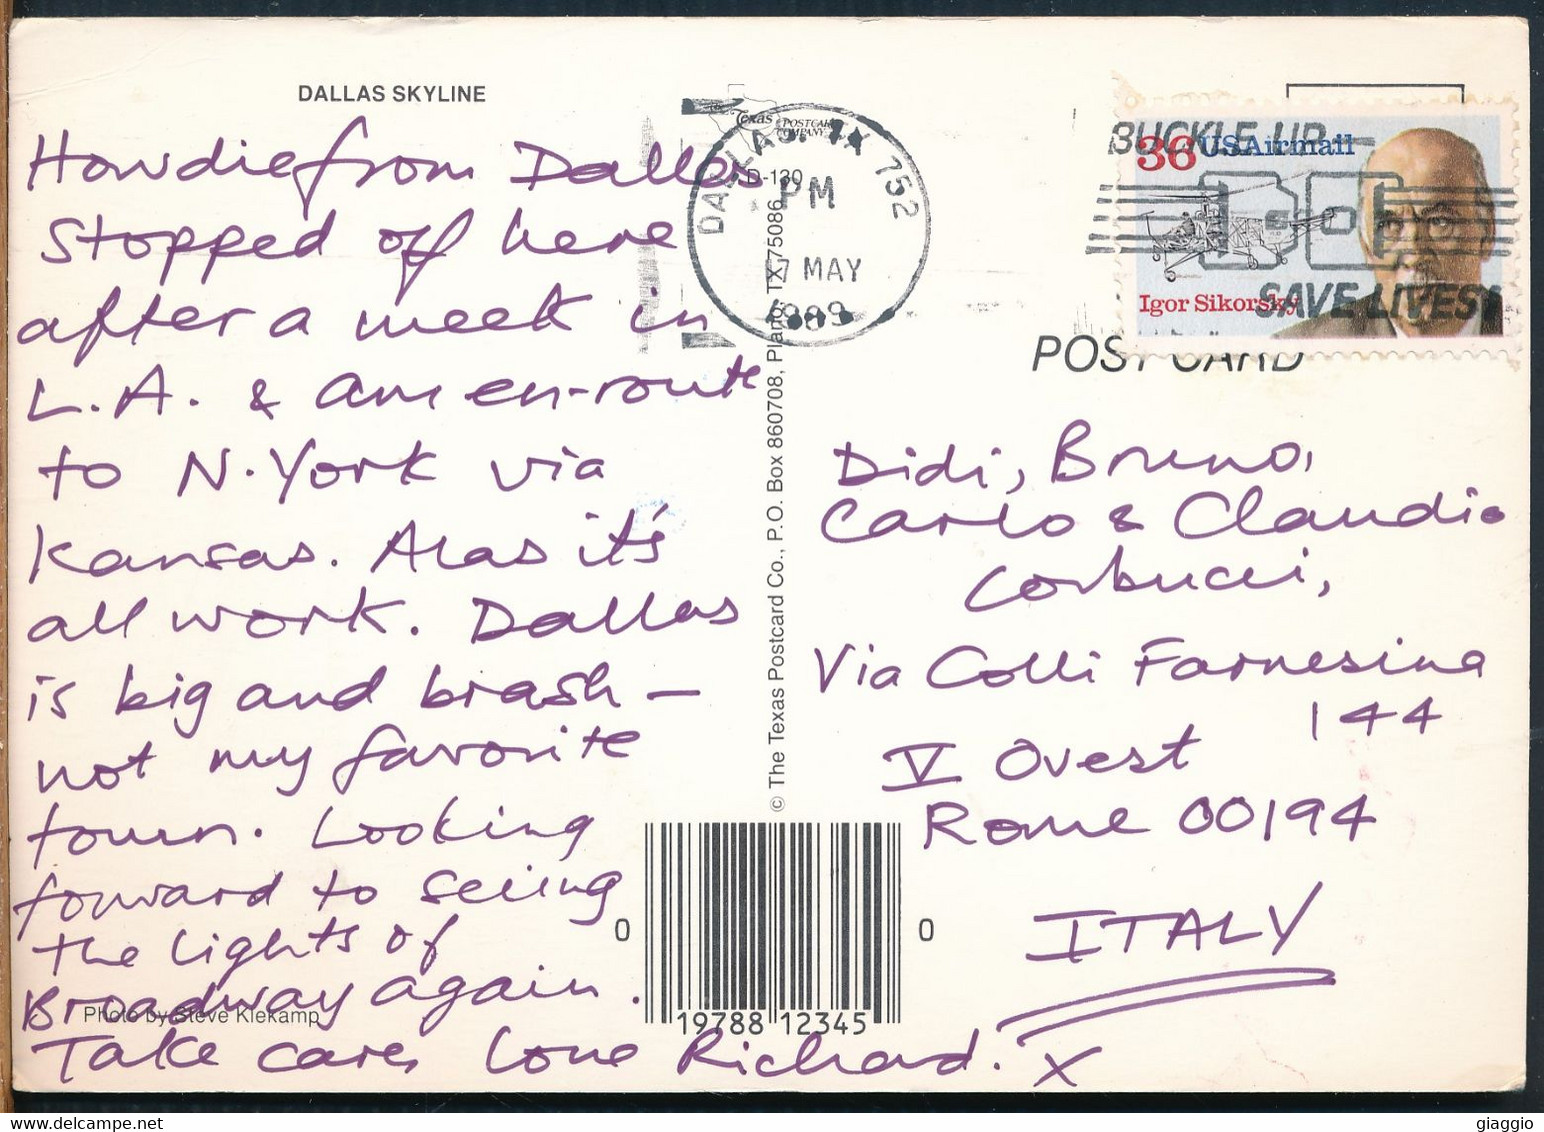 DALLAS SKYLINE
Howdie from Dallas
Stopped off here
after a week in
L.A. & am en-route
to N. York via
Kansas. Alas it's
all work. Dallas
is big and brash —
not my favorite
town. Looking
forward to seeing
the lights of
Broadway again.
Take care, Love Richard. X
Photo by Steve Klekamp
Texas POSTCARD
COMPANY
D-130
DALLAS, TX 752
PM
7 MAY
1989
© The Texas Postcard Co., P.O. Box 860708, Plano, TX 75086
BUCKLE UP —
SAVE LIVES!
36 USAirmail
Igor Sikorsky
POST CARD
Didi, Bruno,
Carlo & Claudio
Corbucci,
Via Colli Farnesina
144
V Ovest
Rome 00194
ITALY
0 19788 12345 0
giaggio